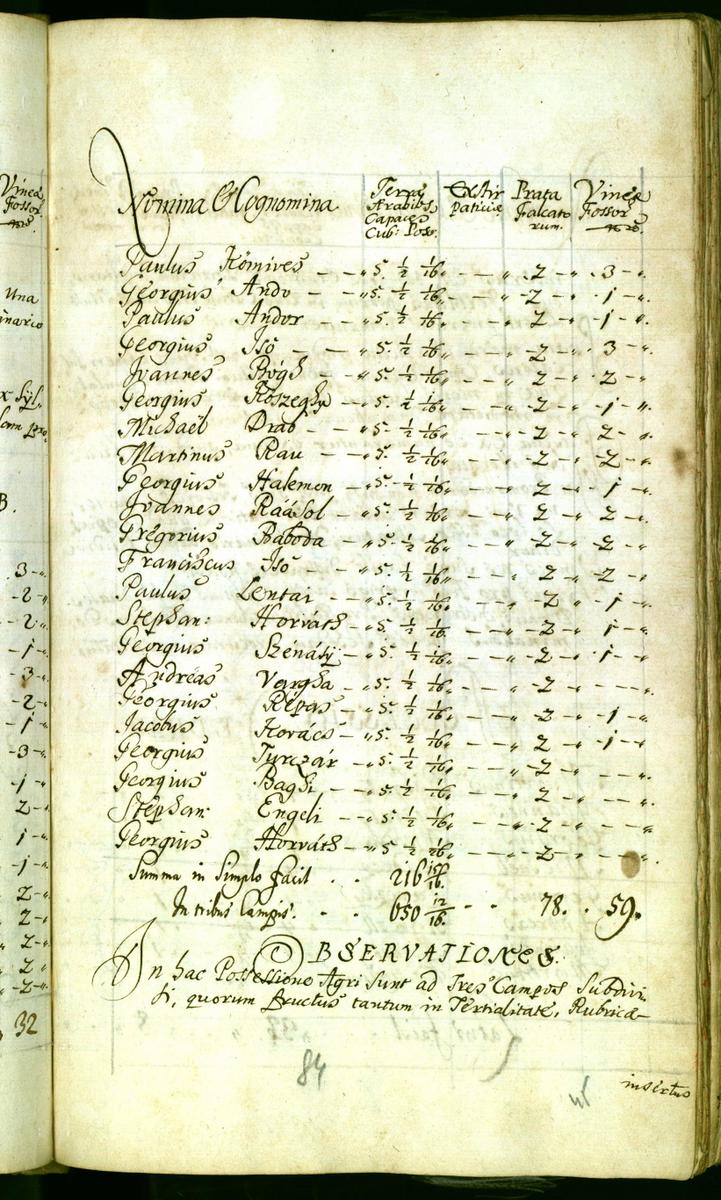 Vineæ
Fossor
Una
inario
x Syl
3 -
- 2 -
- 2 -
- 1 -
- 3 -
- 2 -
- 1 -
- 3 -
- 1 -
2 -
1 -
- 1 -
2 -
2 -
2 -
2 -
- 2 -
32
Nomina & Cognomina Terræ Arabiles Capaces Cub: Poson. Extirpatitiæ Prata Falcatorum. Vineæ Fossor
Paulus Kömives - - " 5. 1/2 1/16 " - - " - 2 - " - 3 - "
Georgius Ando - - " 5. 1/2 1/16 " - - " - 2 - " - 1 - "
Paulus Andor - - " 5. 1/2 1/16 " - - " 2 - " - 1 - "
Georgius Isó - - " 5. 1/2 1/16 " - - " - 2 - " 3 - "
Joannes Bógh - - " 5. 1/2 1/16 " - - " 2 - " - 2 - "
Georgius Köszeghy - " 5. 1/2 1/16 " - - " 2 - " - 1 - "
Michaël Drab - - " 5. 1/2 1/16 " - - " - 2 - " 2 - "
Martinus Rau - - " 5. 1/2 1/16 " - - " - 2 - " - 2 - "
Georgius Halemon - " 5. 1/2 1/16 " - - " 2 - " 1 - "
Joannes Ráásol - " 5. 1/2 1/16 " - - " 2 - " 2 - "
Gregorius Baboda - " 5. 1/2 1/16 " - - " - 2 - " - 2 - "
Franciscus Isó - - " 5. 1/2 1/16 " - - " 2 - " - 2 - "
Paulus Lentai - - " 5. 1/2 1/16 " - - " - 2 - " 1 - "
Stephan: Horváth - " 5. 1/2 1/16 - - " - 2 - " 1 - "
Georgius Szénásÿ - " 5. 1/2 1/16 " - - " - 2 - " - 1 - "
Andreas Vargha - " 5. 1/2 1/16 " - - " - 2 - " - - "
Georgius Répás - " 5. 1/2 1/16 - - " - 2 - " - 1 - "
Jacobus Kovács - " 5. 1/2 1/16 " - - " 2 - " - 1 - "
Georgius Turczár - " 5. 1/2 1/16 " - - " 2 - " - - "
Georgius Baghi - " 5. 1/2 1/16 " - - " 2 - " - - "
Stephan: Engeli - - " 5. 1/2 1/16 " - - " - 2 - " - - "
Georgius Horváth - " 5. 1/2 1/16 " - - " - 2 - - "
Summa in Simplo facit . . 216
In tribus Campis . . . 650 12/16. . . 78. . 59.
OBSERVATIONES.
In hac Possessione Agri sunt ad Tres Campos Subdivi
si, quorum fructus tantum in Tertialitate, Rubricæ
insertus
84